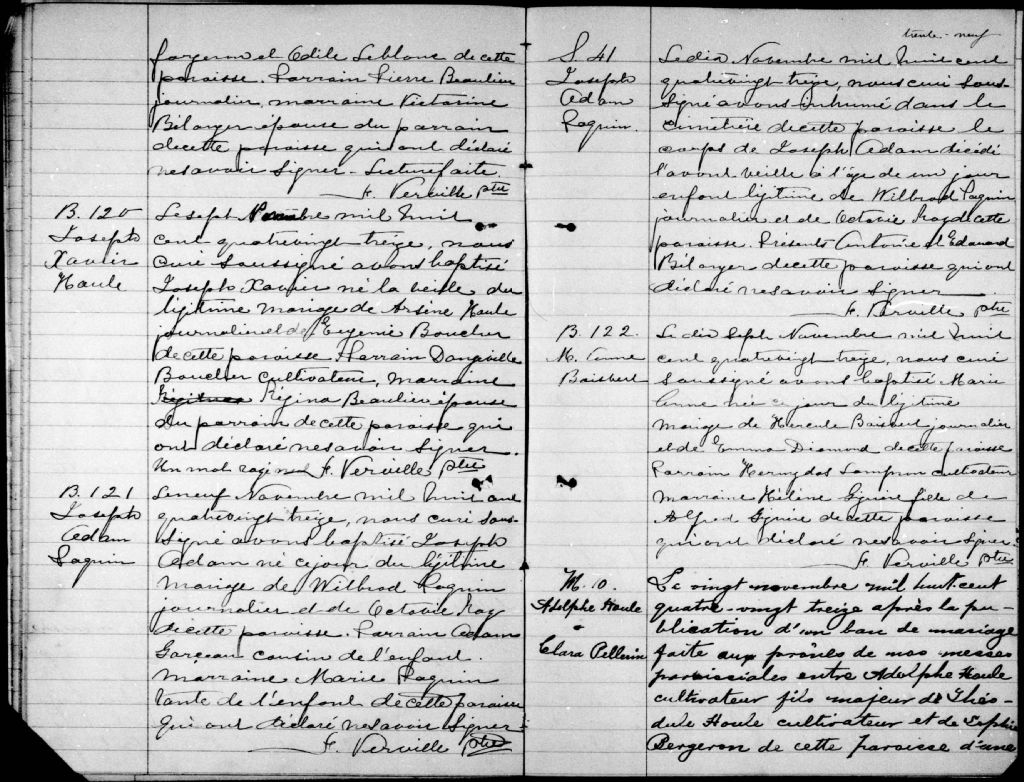 forgeron et Odile Leblanc de cette
paroisse. Parrain Pierre Beaulieu
journalier, marraine Victorine
Bélanger épouse du parrain
de cette paroisse qui ont déclaré
ne savoir signer - Lecture faite.
F. Verville ptre
B. 120
Joseph
Xavier
Houle
Le sept Novembre mil huit
cent quatrevingt treize, nous
curé soussigné avons baptisé
Joseph Xavier né la veille du
légitime mariage de Arsène Houle
journalier et de Eugenie Boucher
de cette paroisse Parrain
Boucher cultivateur, marraine
Régina Beaulieu épouse
du parrain de cette paroisse qui
ont déclaré ne savoir signer.
Un mot rayé nul F. Verville ptre
B. 121
Joseph
Adam
Paquin
Le neuf Novembre mil huit cent
quatrevingt treize, nous curé sous-
signé avons baptisé Joseph
Adam né ce jour du légitime
mariage de Wilbrod Paquin
journalier et de Octavie
de cette paroisse. Parrain Adam
Garceau cousin de l'enfant.
marraine Marie Paquin
tante de l'enfant de cette paroisse
qui ont déclaré ne savoir signer
F. Verville ptre
trente-neuf
S. 41
Joseph
Adam
Paquin.
Le dix Novembre mil huit cent
quatrevingt treize, nous curé sous-
signé avons inhumé dans le
cimetière de cette paroisse le
corps de Joseph Adam décédé
l'avant veille à l'âge de un jour
enfant légitime de Wilbrod Paquin
journalier et de Octavie de cette
paroisse. Présents Antoine et Edouard
Bélanger de cette paroisse qui ont
déclaré ne savoir signer
F. Verville ptre
B. 122.
M. Anne
Boisvert
Le dix sept Novembre mil huit
cent quatrevingt treize, nous curé
soussigné avons baptisé Marie
Anne née ce jour du légitime
mariage de Hercule Boisvert journalier
et de Emma Diamond de cette paroisse
Parrain Hermydas cultivateur
marraine Hélène fille de
Alfred de cette paroisse
qui ont déclaré ne savoir signer.
F. Verville ptre
M. 10
Adolphe Houle
&
Clara Pellerin
Le vingt novembre mil huit-cent
quatre-vingt treize après la pu-
blication d'un ban de mariage
faite aux prônes de nos messes
paroissiales entre Adolphe Houle
cultivateur fils majeur de Théo-
dule Houle cultivateur et de Sophie
Bergeron de cette paroisse d'une